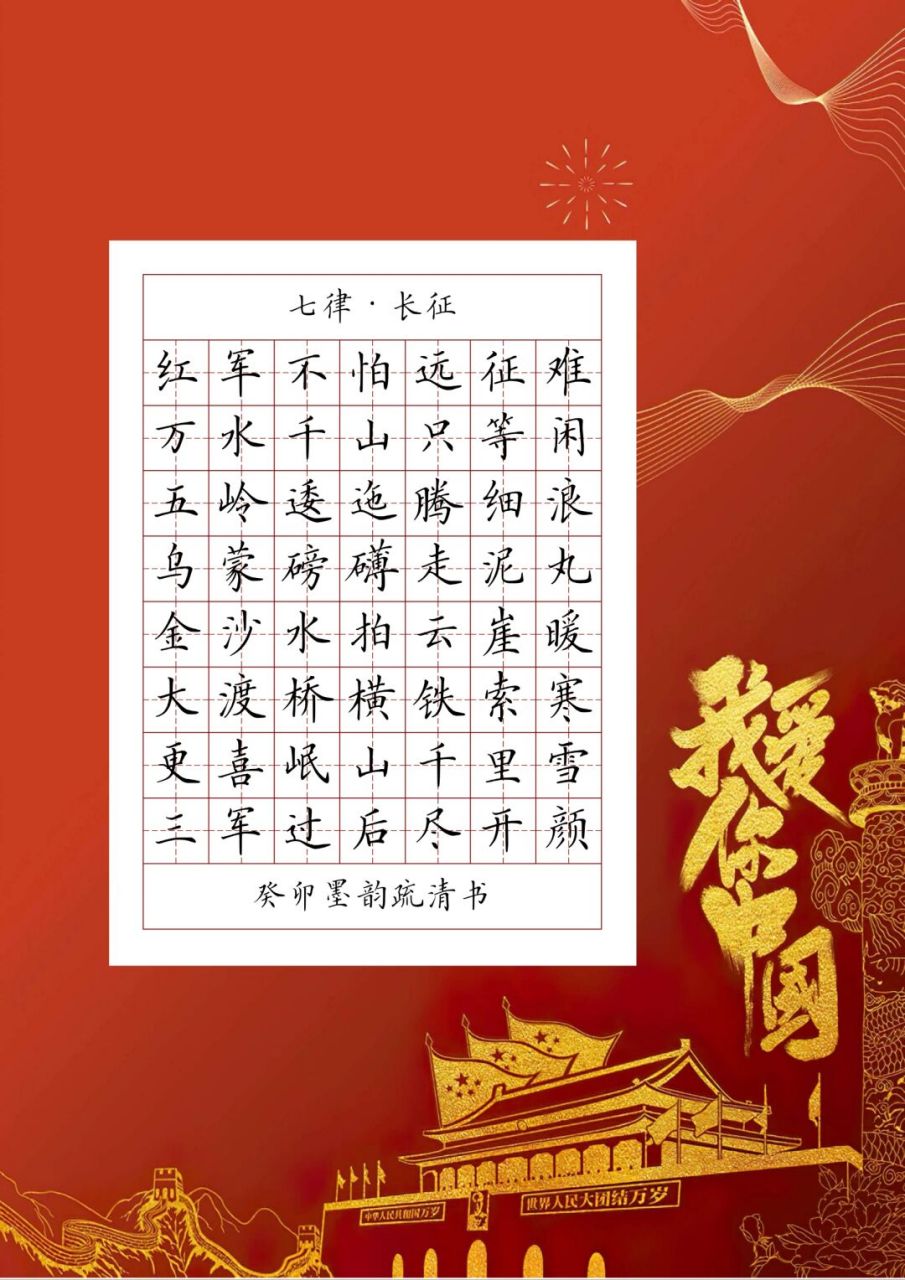 七律·长征
红军不怕远征难
万水千山只等闲
五岭逶迤腾细浪
乌蒙磅礴走泥丸
金沙水拍云崖暖
大渡桥横铁索寒
更喜岷山千里雪
三军过后尽开颜
癸卯墨韵疏清书
我爱
你
中国
中华人民共和国万岁
世界人民大团结万岁